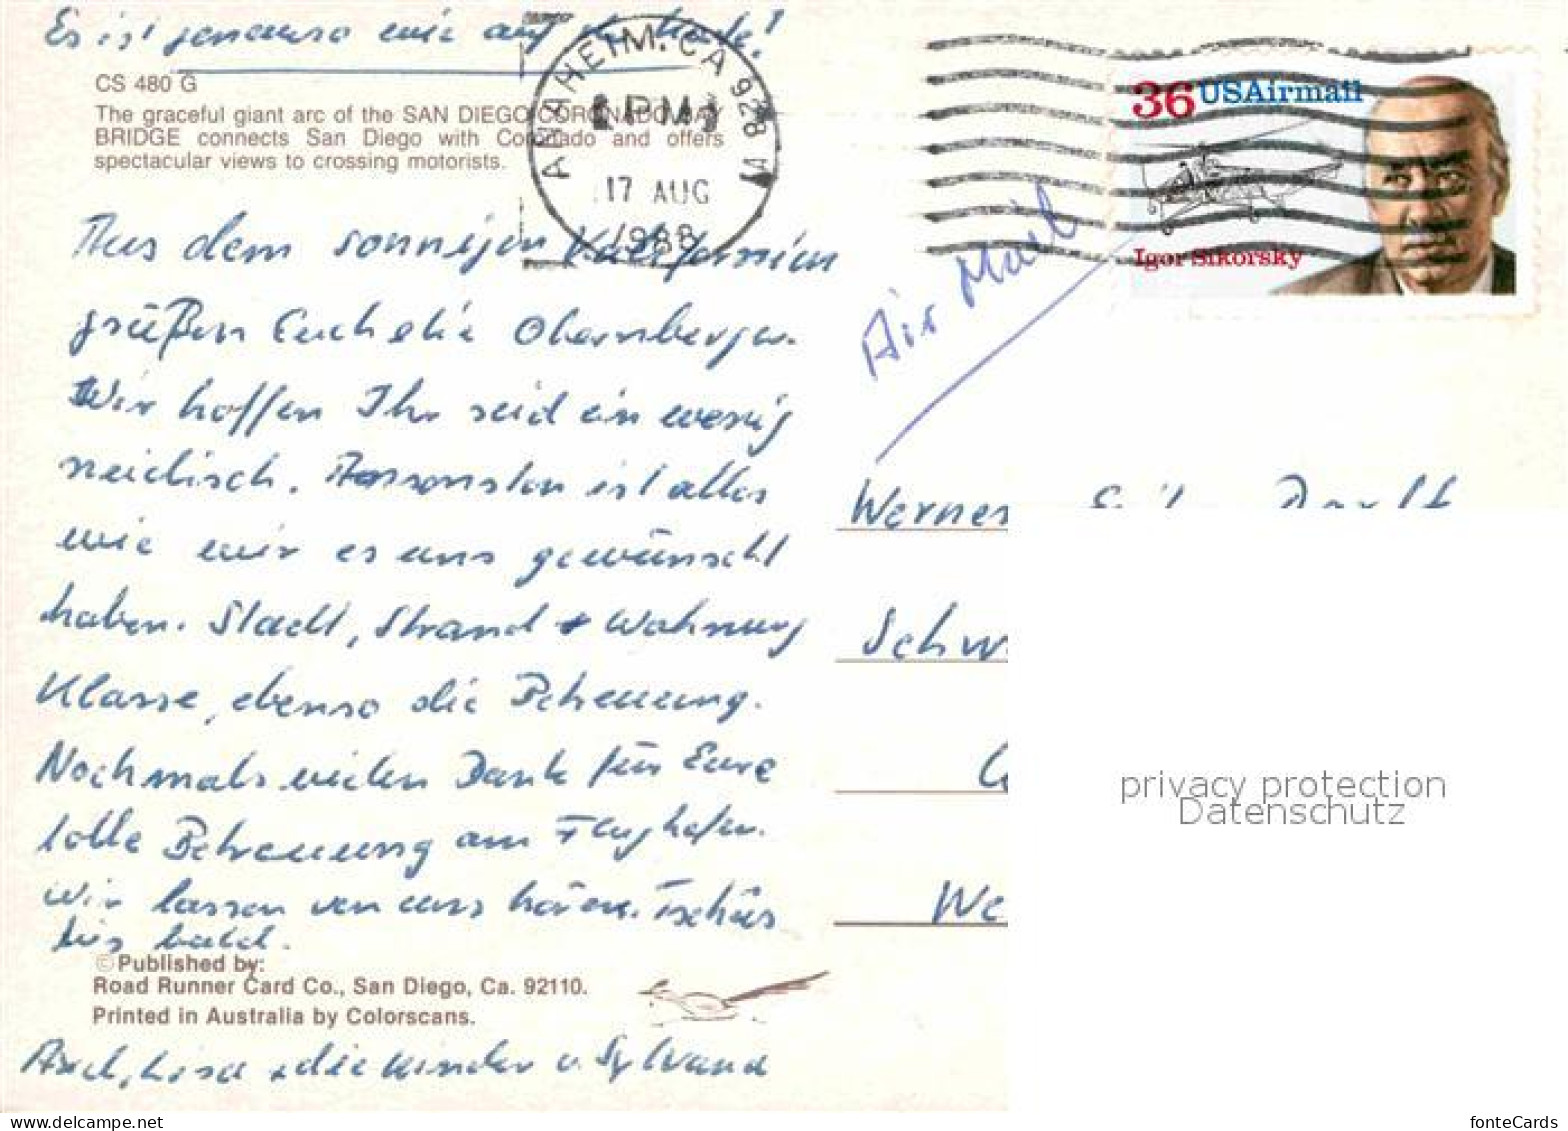 Es ist genauso wie auf der Karte!
CS 480 G
The graceful giant arc of the SAN DIEGO CORONADO BAY
BRIDGE connects San Diego with Coronado and offers
spectacular views to crossing motorists.
ANAHEIM, CA 928
PM
17 AUG
1988
36 USAirmail
Igor Sikorsky
Air Mail
Aus dem sonnigen Kalifornien
grüßen Euch die Obernberger.
Wir hoffen Ihr seid ein wenig
neidisch. Ansonsten ist alles
wie wir es uns gewünscht
haben. Stadt, Strand + Wohnung
Klasse, ebenso die Betreuung.
Nochmals vielen Dank für Eure
tolle Betreuung am Flughafen.
Wir lassen von uns hören. Tschüs
bis bald.
©Published by:
Road Runner Card Co., San Diego, Ca. 92110.
Printed in Australia by Colorscans.
Axel, Lisa + die Kinder u. Sylvana
Werner
Schw
We
privacy protection
Datenschutz
fonteCards